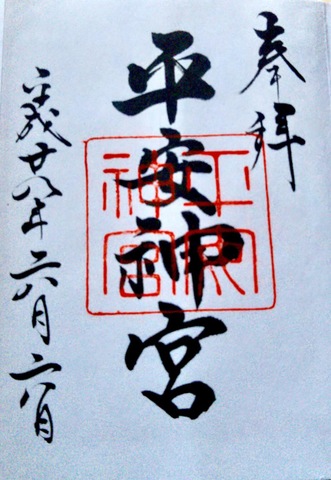 奉拝
平安神宮
神宮
平成廿八年六月六日